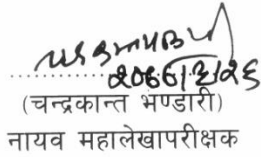 २०७७।३।२६
(चन्द्रकान्त भण्डारी)
नायव महालेखापरीक्षक